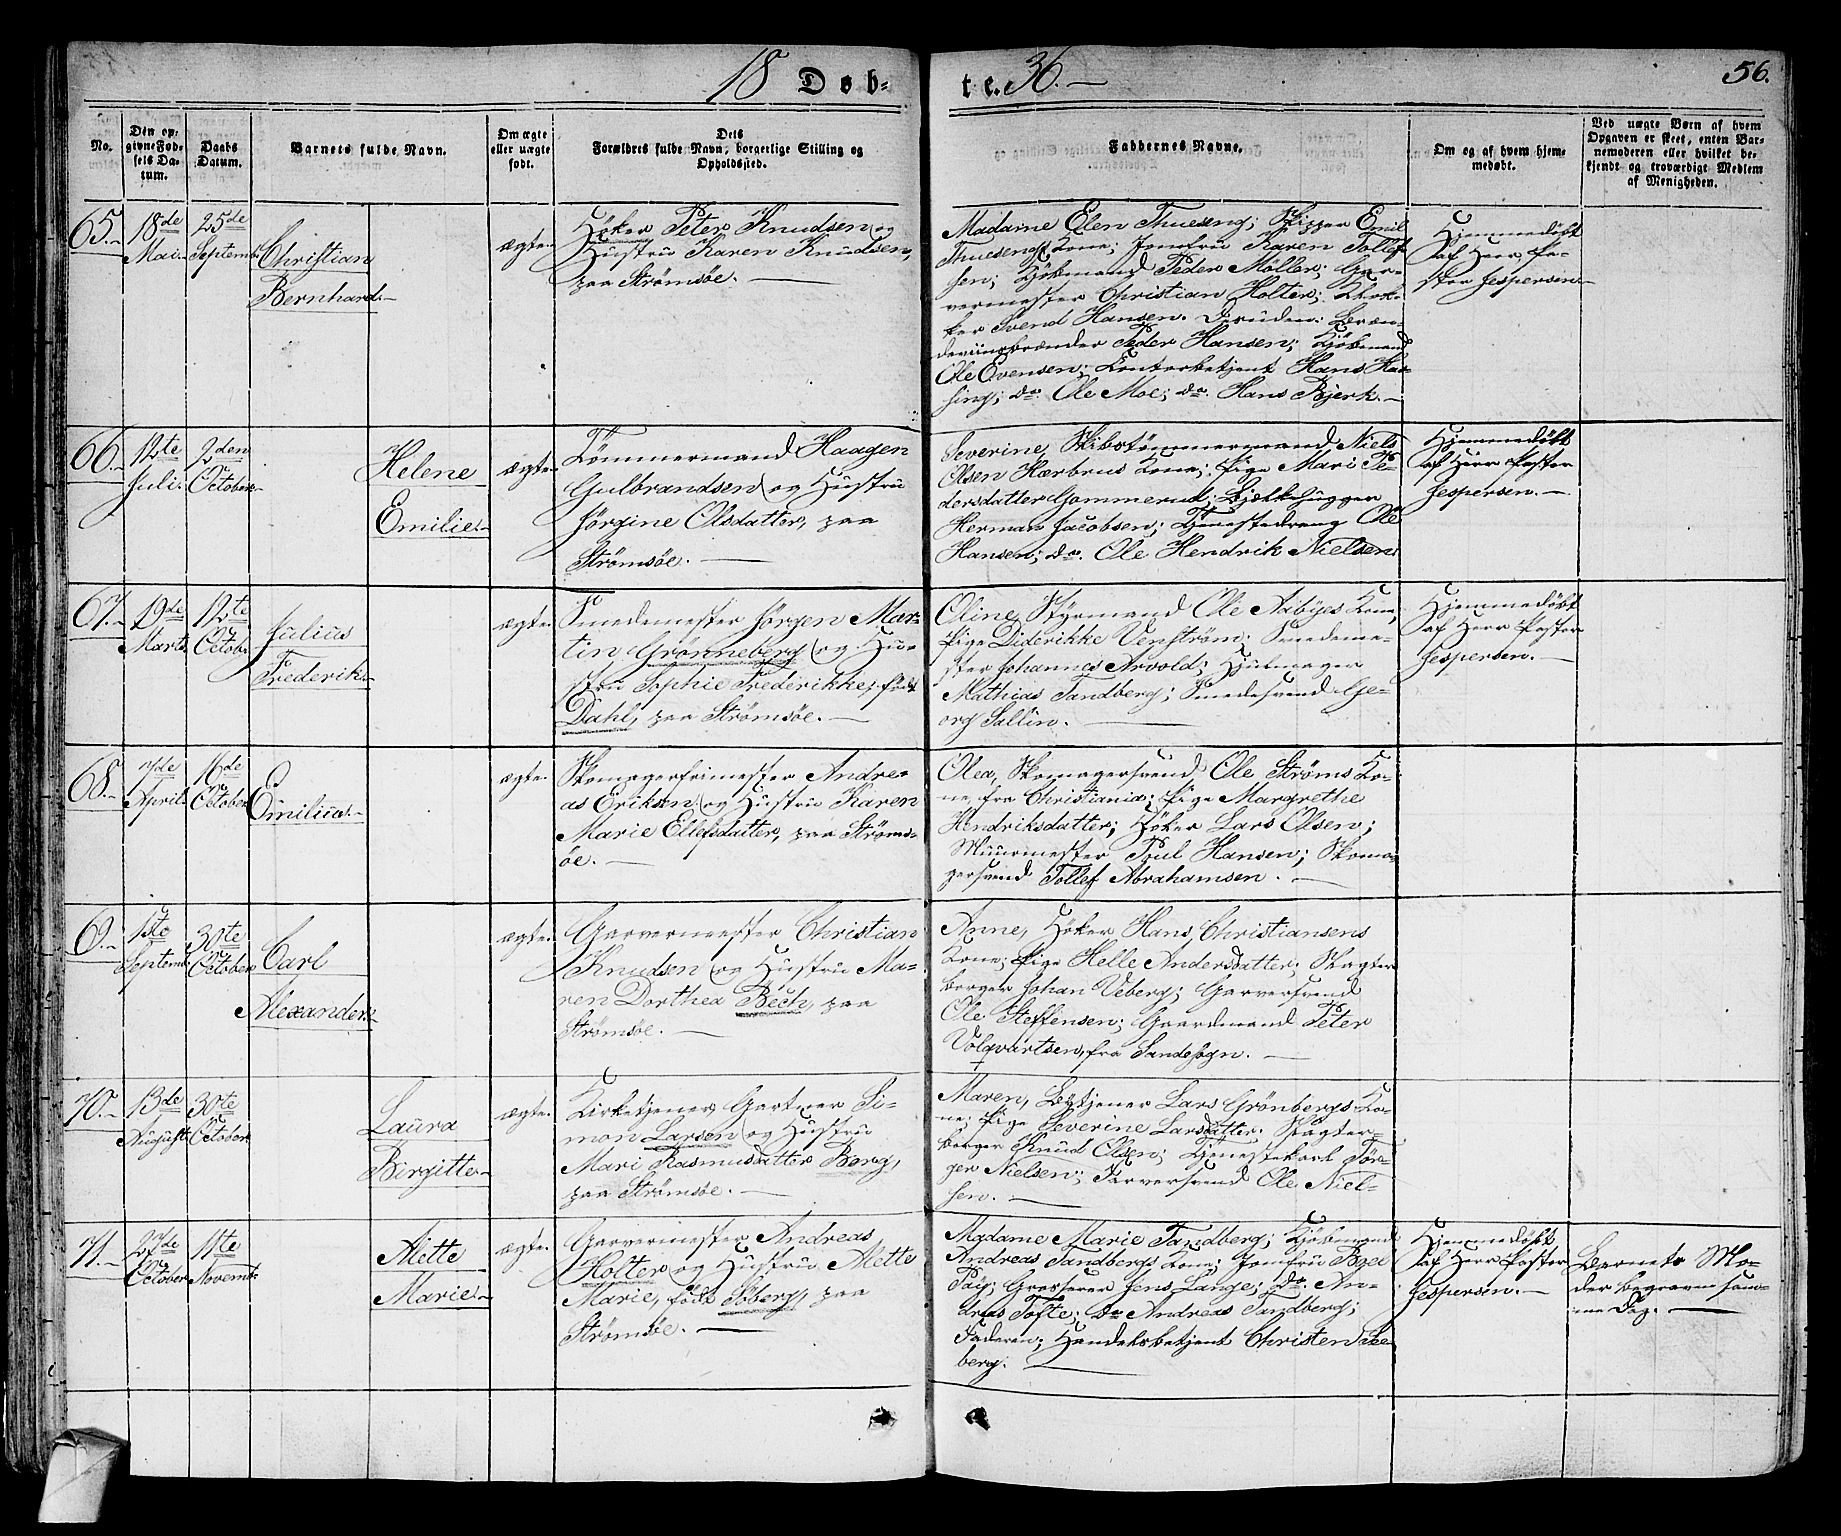 18 Döb-
te. 36.
56.
No.
Den op-
givne Fød-
sels Da-
tum.
Daabs
Datum.
Barnets fulde Navn.
Om ægte
eller uægte
født.
Dets
Forældres fulde Navn, borgerlige Stilling og
Opholdssted.
Faddernes Navne.
Om og af hvem hjem-
medøbt.
Ved uægte Børn af hvem
Opgaven er skeet, enten Bar-
nemoderen eller hvilket be-
kjendt og troværdigt Medlem
af Menigheden.
65.
18de
Mai.
25de
Septemb.
Christian
Bernhard.
ægte.
Höker Peter Knudsen og
Hustru Karen Knudsen,
paa Strömsöe.
Madame Elen Thueseng; Skipper Emil
Thuesengs Kone; Jomfru Karen Tollef-
sen; Kjöbmand Peder Möller; Gar-
vermester Christian Holter; Klok-
ker Svend Hansen. Desuden: Bræn-
deviinsbrænder Peder Hansen; Kjöbmand
Ole Evensen; Contorbetjent Hans Han-
sing; do. Ole Moe; do. Hans Bjerk.
Hjemmedöbt
af Herr Pa-
stor Jespersen.
66.
12te
Juli.
2den
October.
Helene
Emilie.
ægte.
Tömmermand Haagen
Gulbrandsen og Hustru
Jörgine Olsdatter, paa
Strömsöe.
Severine, Skibstömmermand Niels
Olsen Hærbrus Kone; Pige Mari Pe-
dersdatter Gommerud; Bjelkehugger
Herman Jacobsen; Tjenestedreng Ole
Hansen; do. Ole Hendrik Nielsen.
Hjemmedöbt
af Herr Pastor
Jespersen.
67.
19de
Marts.
12te
Octob.
Julius
Frederik.
ægte.
Smedemester Jörgen Mar-
tin Grönneberg og Hu-
stru Sophie Frederikke, födt
Dahl, paa Strömsöe.
Oline, Styrmand Ole Aabyes Kone,
Pige Diderikke Venström; Smedeme-
ster Johannes Arvold; Hjulmager
Mathias Sandberg; Smedesvend Ge-
org Sallin.
Hjemmedöbt
af Herr Pastor
Jespersen.
68.
7de
April.
16de
October.
Emilius.
ægte.
Skomagerfrimester Andre-
as Eriksen og Hustru Karen
Marie Ellefsdatter, paa Ströms-
öe.
Olea, Skomagersvend Ole Ströms Ko-
ne, fra Christiania; Pige Margrethe
Hendriksdatter; Höker Lars Olsen;
Muurmester Poul Hansen; Skoma-
gersvend Tollef Abrahamsen.
69.
1ste
Septemb.
30te
October.
Carl
Alexander.
ægte.
Garvermester Christian
Knudsen og Hustru Ma-
ren Dorthea Bech, paa
Strömsöe.
Anne, Höker Hans Christiansens
Kone; Pige Helle Andersdatter; Skagter-
borger Johan Veberg; Garversvend
Ole Steffensen; Gaardmand Peter
Volqvartsen, fra Sandesogn.
70.
13de
August.
30te
October.
Laura
Birgitte.
ægte.
Kirketjener, Gartner Si-
mon Larsen og Hustru
Mari Rasmusdatter Berg,
paa Strömsöe.
Maren, Bytjener Lars Grönbergs Ko-
ne; Pige Severine Larsdatter;
borger Knud Olsen; Tjenestekarl Jör-
ger Nielsen; Farversvend Ole Niel-
sen.
71.
27de
October
11te
Novemb.
Alette
Marie.
ægte.
Garvermester Andreas
Holter og Hustru Alette
Marie, födt Söberg, paa
Strömsöe.
Madame Marie Sandberg; Kjöbmand
Andreas Sandbergs Kone; Jomfru Boel
Paig; Grosserer Jens Lange; do. An-
dreas Tofte; do Andreas Sandberg;
Faderen; Handelsbetjent Christen See-
berg.
Hjemmedöbt
af Herr Pastor
Jespersen.
Barnets Mo-
der begraven sam-
me Dag.